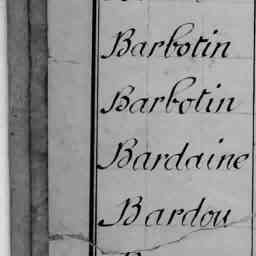 Barbotin
Barbotin
Bardaine
Bardou